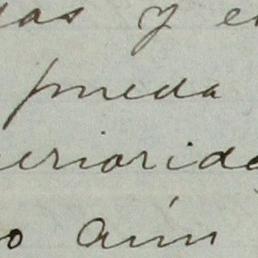 das y en
pueda
erioridad
o aún